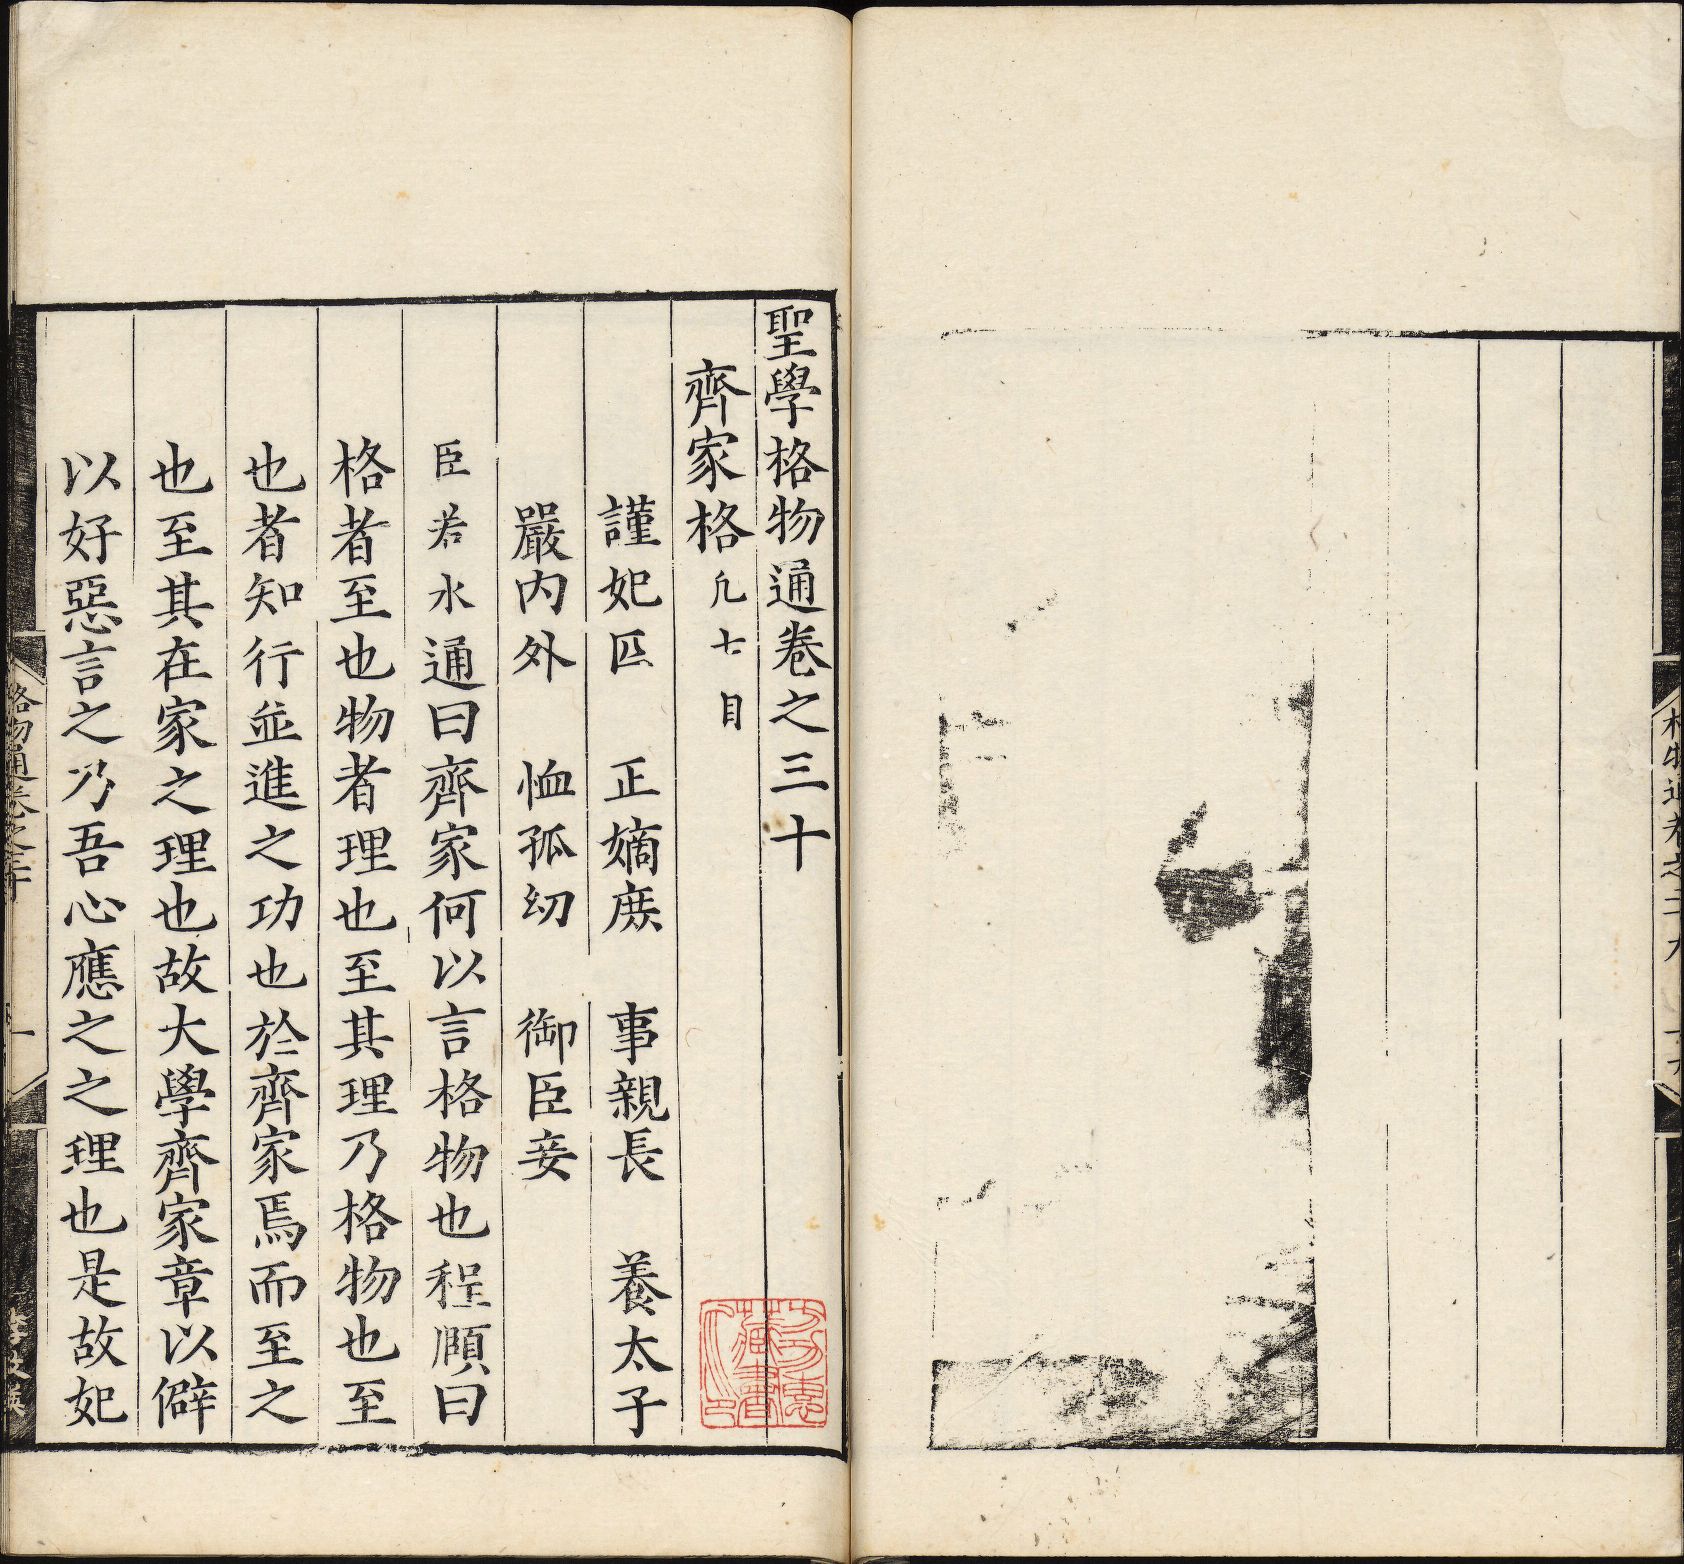 聖學格物通卷之三十
齊家格 凢七目
謹妃匹　正嫡庶　事親長　養太子
嚴内外　恤孤幼　御臣妾
臣若水通曰齊家何以言格物也程頤曰
格者至也物者理也至其理乃格物也至
也者知行並進之功也於齊家焉而至之
也至其在家之理也故大學齊家章以僻
以好惡言之乃吾心應之之理也是故妃
格物通卷之三十
一